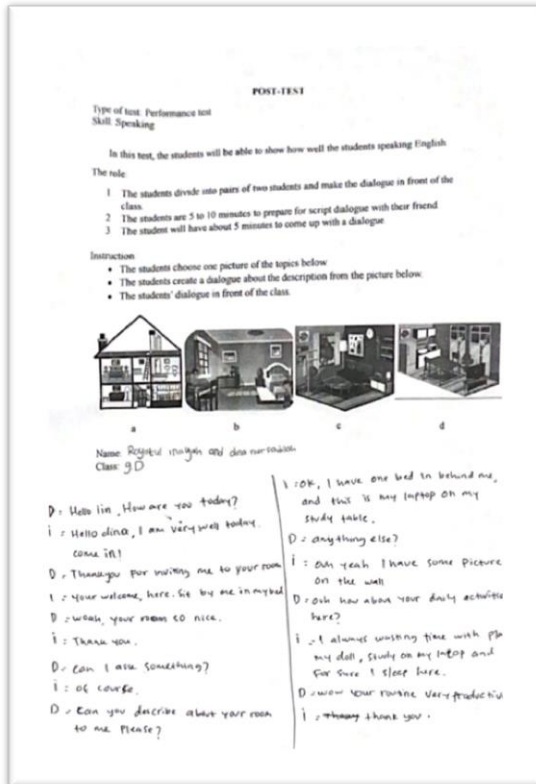 POST-TEST
Type of test: Performance test
Skill: Speaking
In this test, the students will be able to show how well the students speaking English
The role
1 The students divide into pairs of two students and make the dialogue in front of the
class.
2 The students are 5 to 10 minutes to prepare for script dialogue with their friend
3 The student will have about 5 minutes to come up with a dialogue
Instruction
• The students choose one picture of the topics below
• The students create a dialogue about the description from the picture below.
• The students' dialogue in front of the class.
a b c d
Name: and dina nur
Class: 9D
D: Hello Iin, How are you today?
i: Hello dina, I am very well today.
come in!
D: Thankyou for inviting me to your room
I: your welcome, here. Sit by me in my bed
D: woah, your room so nice.
i: Thank you.
D: can I ask something?
i: of course.
D: Can you describe about your room
to me please?
i: ok, I have one bed in behind me,
and this is my laptop on my
study table.
D: anything else?
i: ouh yeah I have some picture
on the wall
D: ouh how about your daily activities
here?
i: I always wasting time with
my doll, study on my laptop and
for sure I sleep here.
D: wow your routine very productiv
i: thank you.